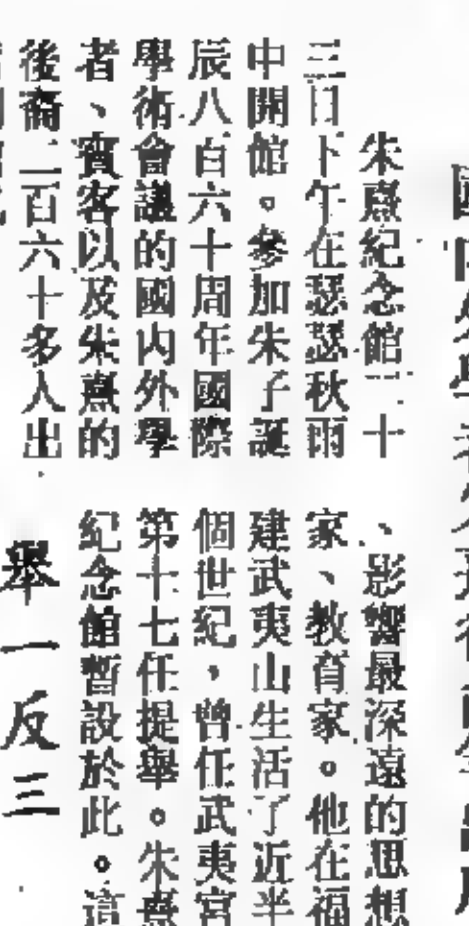 朱熹紀念館二十
三日下午在瑟瑟秋雨
中開館。參加朱子誕
辰八百六十周年國際
學術會議的國內外學
者、賓客以及朱熹的
後裔二百六十多人出
、影響最深遠的思想
家、教育家。他在福
建武夷山生活了近半
個世紀，曾任武夷宮
第十七任提舉。朱熹
紀念館暫設於此。這
舉一反三